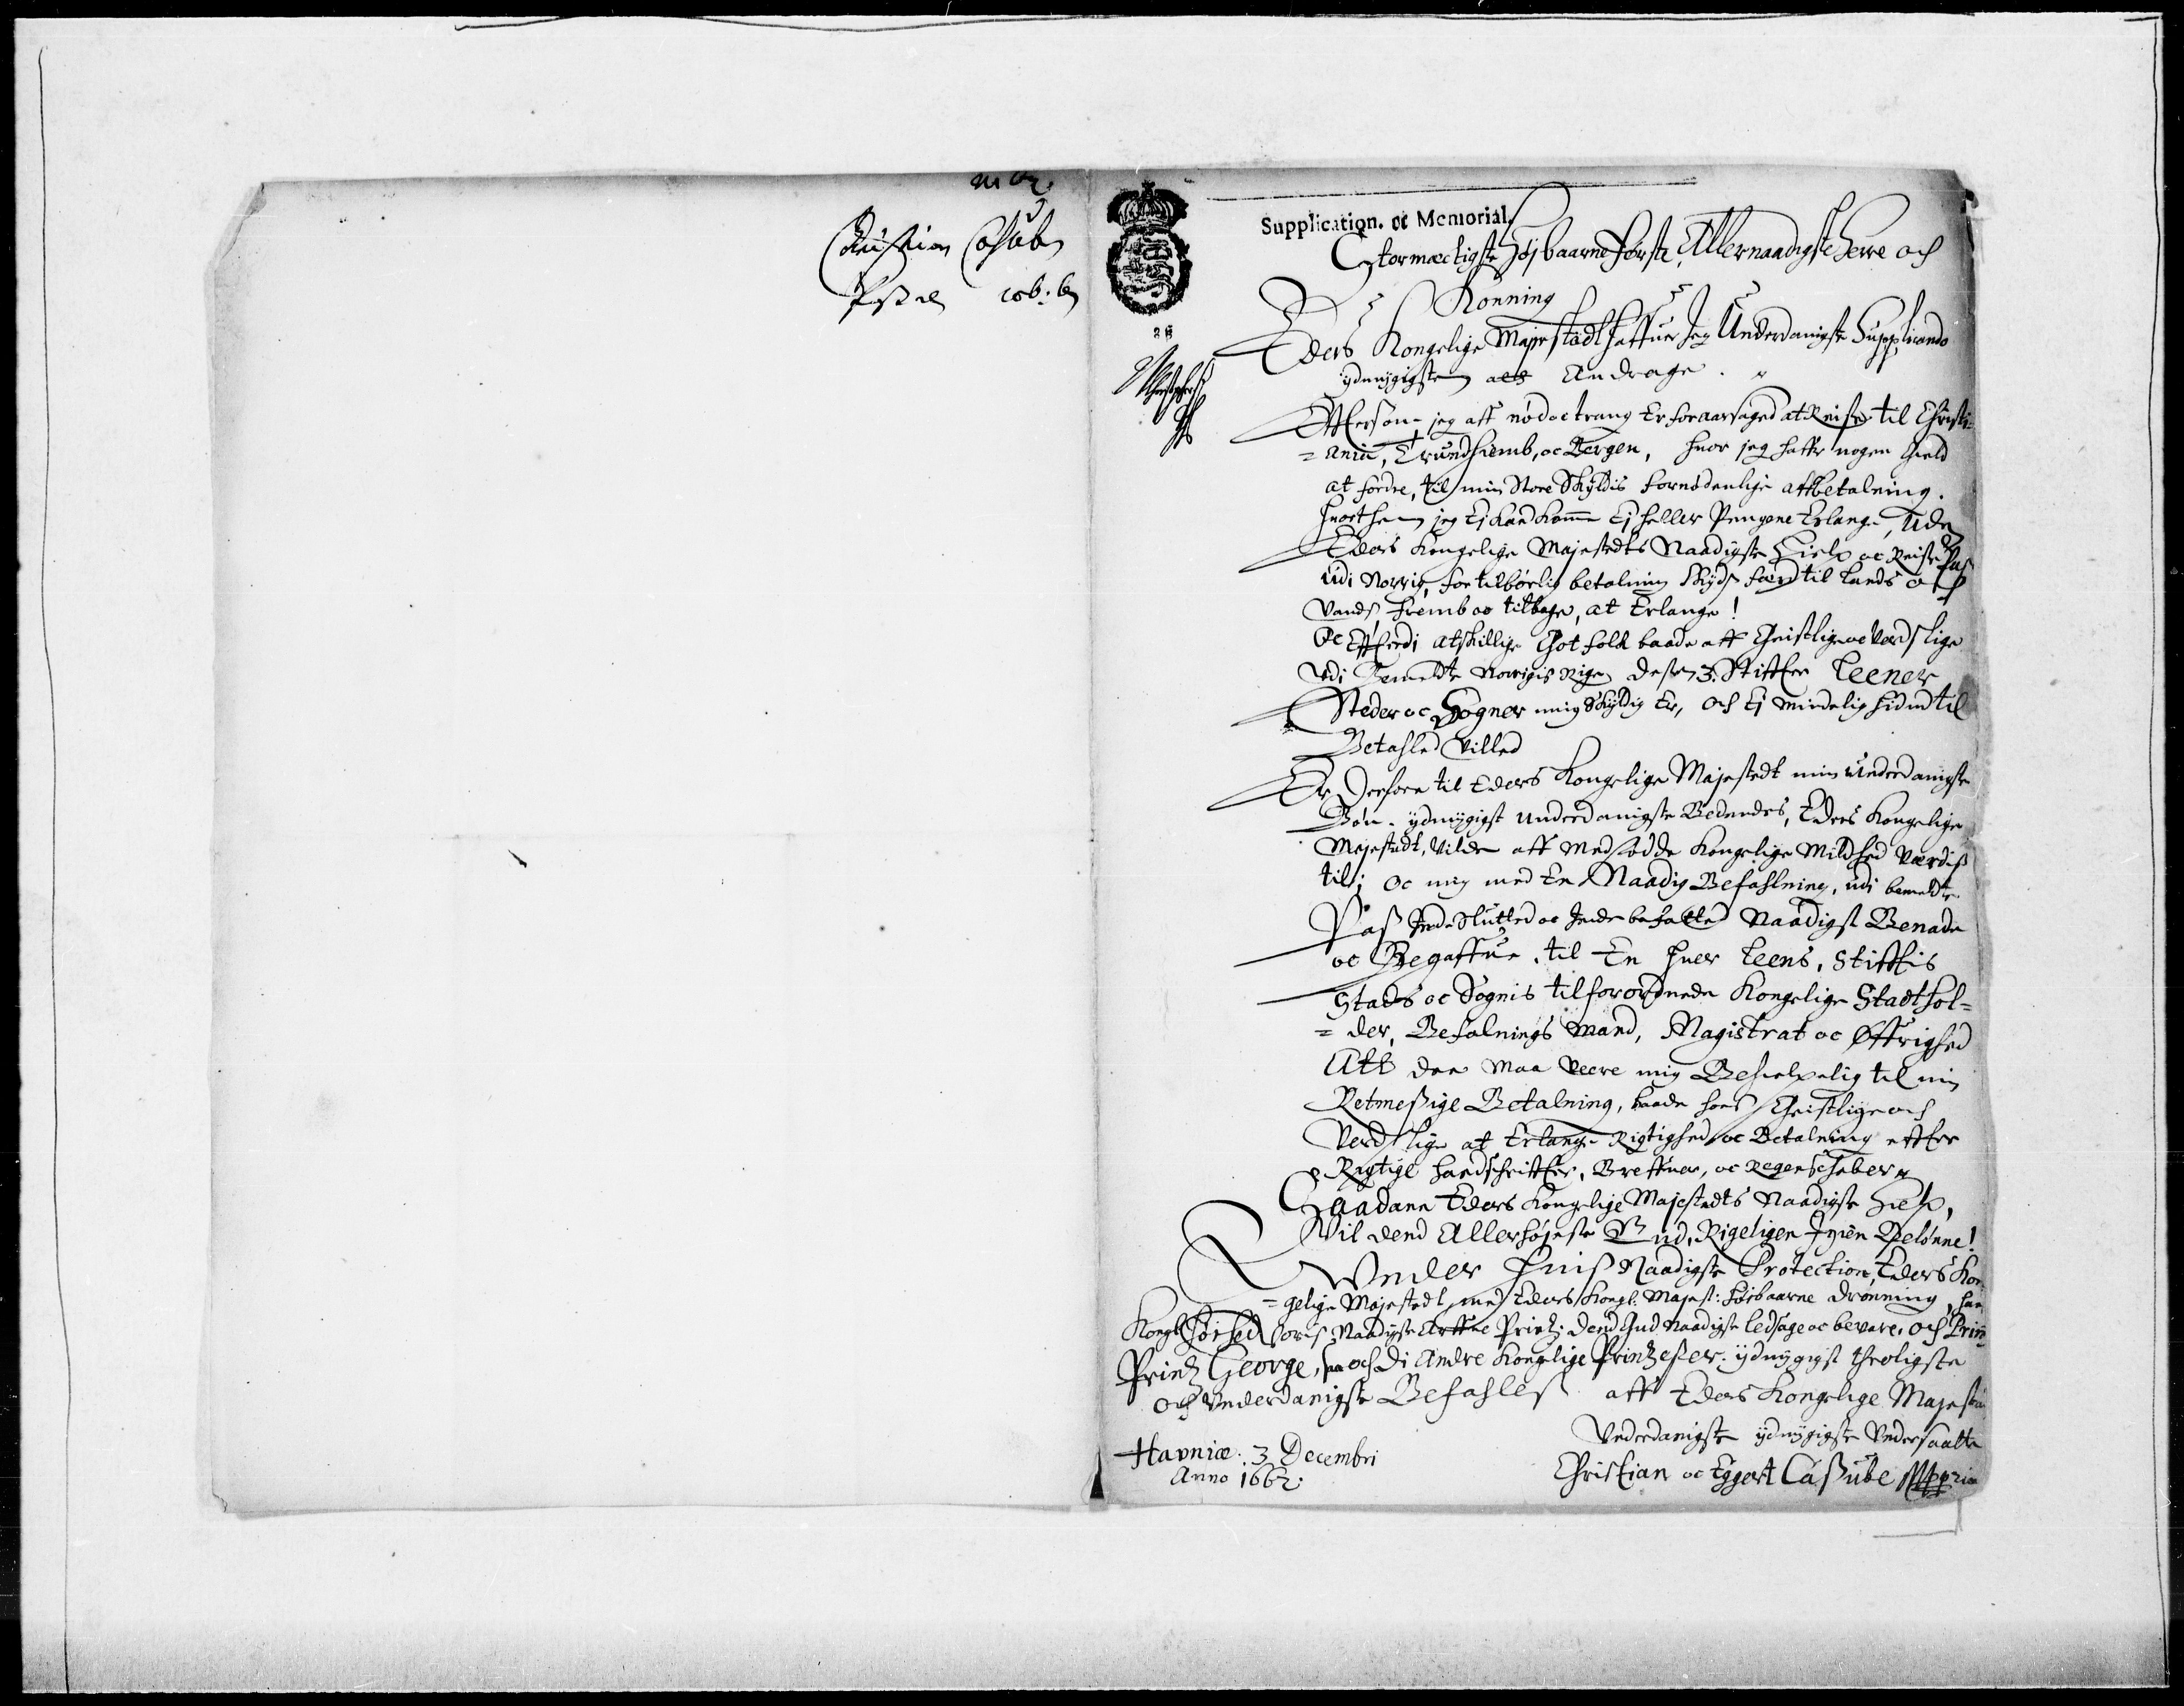 Christian Casube
Supplication. oc Memorial.
Stormectigste Højbaarne Første, Allernaadigste Herre och
Konning
Eders Kongelige Majestadt haffuer Jeg Underdanigste Supplicando
ydmygigsten at Andrage.
Effterson jeg aff nød oc trang Er foraarsaged at Reise til Christi-
= ania, Trundhiemb, oc Bergen, huor jeg haffr nogen Gield
at fordre, til min Store Skyldis fornødenlige affbetalning.
huorthen jeg Ej kand komme Ej heller Pengene Erlange, Uden
Eders Kongelige Majestedts Naadigste Hielp oc Reise Pas
udi Norrig, for tilbørlig betalning Skyds færd til Lands och
Vands, fremb oc tilbage, at Erlange!
Oc Effterdi atskillige Got folk baade aff Geistlige oc Verdslige
Udi Bemelte Norrigis Rige desen 3. Stiffter Leener
Steder oc Sogner mig Skyldig Er, och Ej mindelig hidindtil
Betahled Villed
Er Derfore til Eders Kongelige Majestedt min underdanigste
Bøn. ydmygigst underdanigste Bedendes, Eders Kongelige
Majestedt, Vilde aff Medfødde Kongelige Mildhed Værdis
til; oc mig med En Naadig Befahlning, udi bemeldte
Pas Inde Slutted oc Inde befatted Naadigst Benade
oc Begaffue, til En huer Leens, Stifftis
Stads oc Sognis tilforordnede Kongelige Stadthol=
= der, Befalnings Mand, Magistrat oc Øffrighed
Att dee Maa Veere mig Behielpelig til min
Retmeßige Betalning, baade hoes Geistlige och
Verdslige at Erlange Rigtighed oc Betalning effter
Rigtige handschriffter, Breffuer, oc Regenschaber
Saadane Eders Kongelige Majestedts Naadigste Hielp,
Vil dend Allerhøjeste Gud, Rigeligen Igien Belønne!
Under Huis Naadigste Protection, Eders Kon
= gelige Majestedt, med Eders Kongl. Majest: høibaarne Dronning, han
Kongl høihed voris Naadigste Arffue Printz. dend Gud naadigste ledsage oc bevare, och Prin
Printz George, saa och di Andre Kongelige Printzeßer. ydmygigst throligste
och Underdanigste Befahles aff Eders Kongelige Majest
Underdanigste ydmygigste Undersaatte
Havniæ: 3 Decembri
Anno 1662.
Christian oc Eggert Caßube